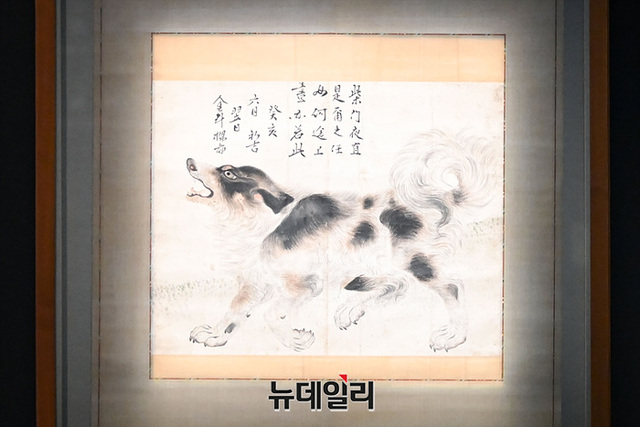 柴門夜直
是爾之任
如何途上
晝亦若此
癸亥
六月初吉
翌日
金斗樑
뉴데일리